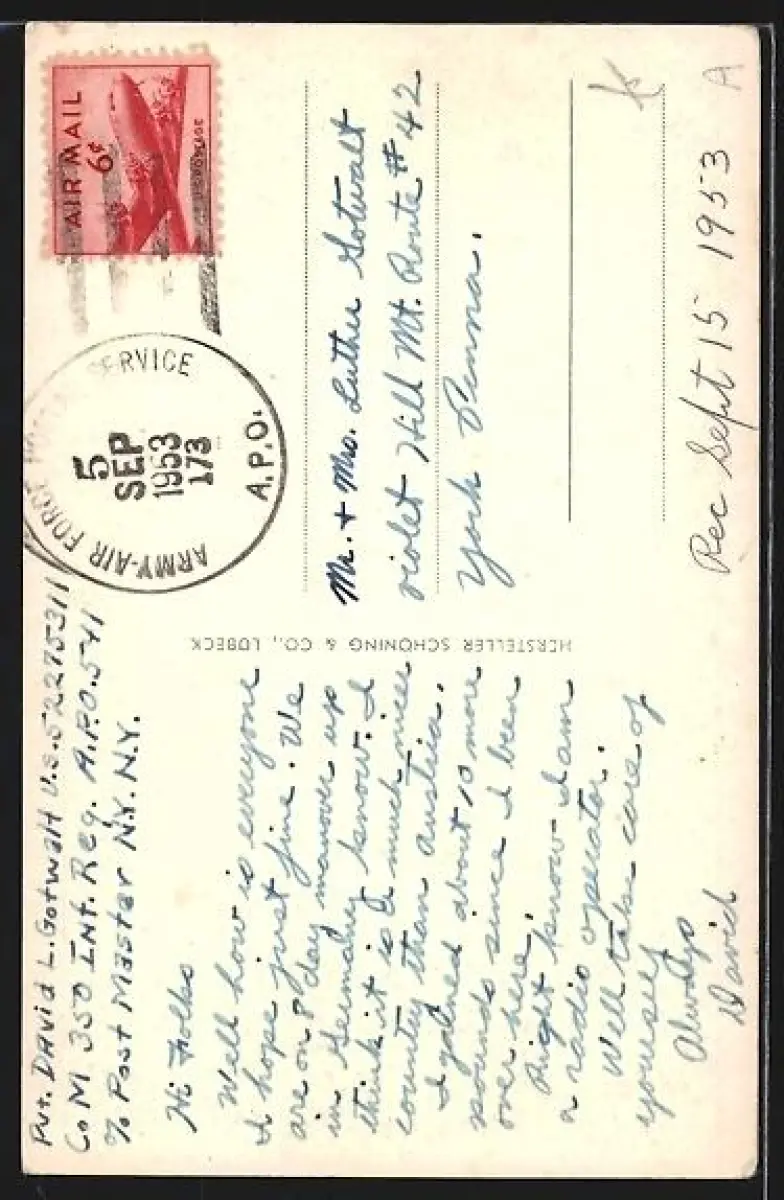 Pvt. DAVID L. GotwalT U.S. 52275311
Co M 350 INf. Reg. A.P.O. 541
% Post MasTer N.Y. N.Y.
Hi Folks
Well how is everyone
I hope just fine. We
are on 8 day manover up
in Germany know. I
think it is a much nicer
country than austria.
I gained about 10 more
pounds since I been
over here.
Right know I am
a radio operator.
Well take care of
yourself
Always
David
HERSTELLER SCHÖNING & CO., LÜBECK
AIR MAIL
6¢
ARMY-AIR FORCE POSTAL SERVICE
5
SEP
1953
173
A.P.O.
Mr. + Mrs. Luther Gotwalt
violet Hill Mt. Route # 42
York Penna.
Rec Sept 15 1953 A